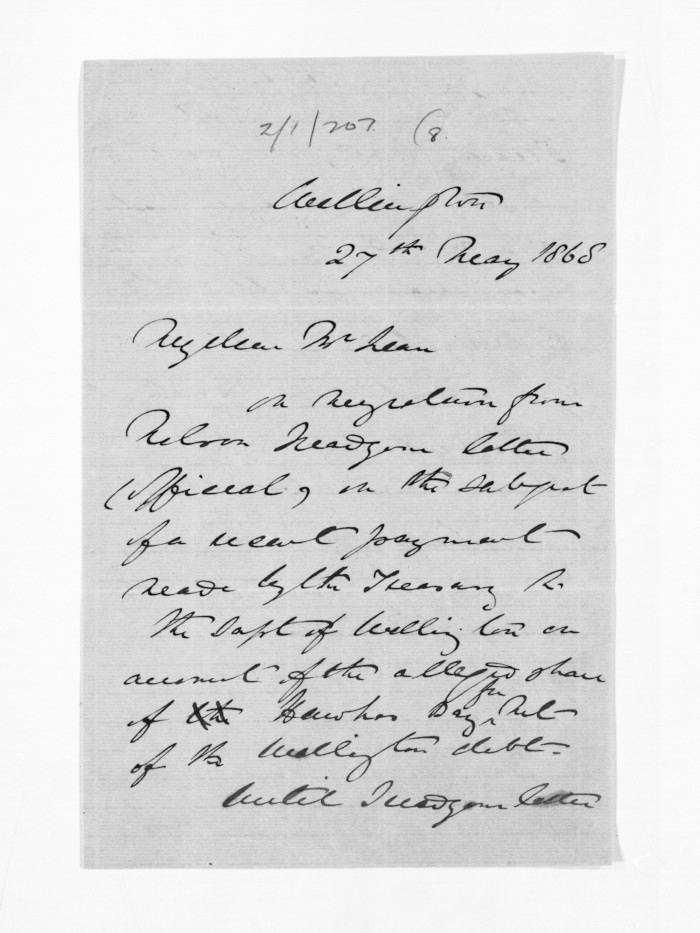 2/1/207. (8.
Wellington
27th May 1868
My dear Mr Lean
on my return from
Nelson I read your letter
(official) on the subject
of a recent payment
made by the Treasury to
the Supt of Wellington on
account of the alleged share
of Hawkes Bay, for
of the Wellington debt-
Until I read your letter